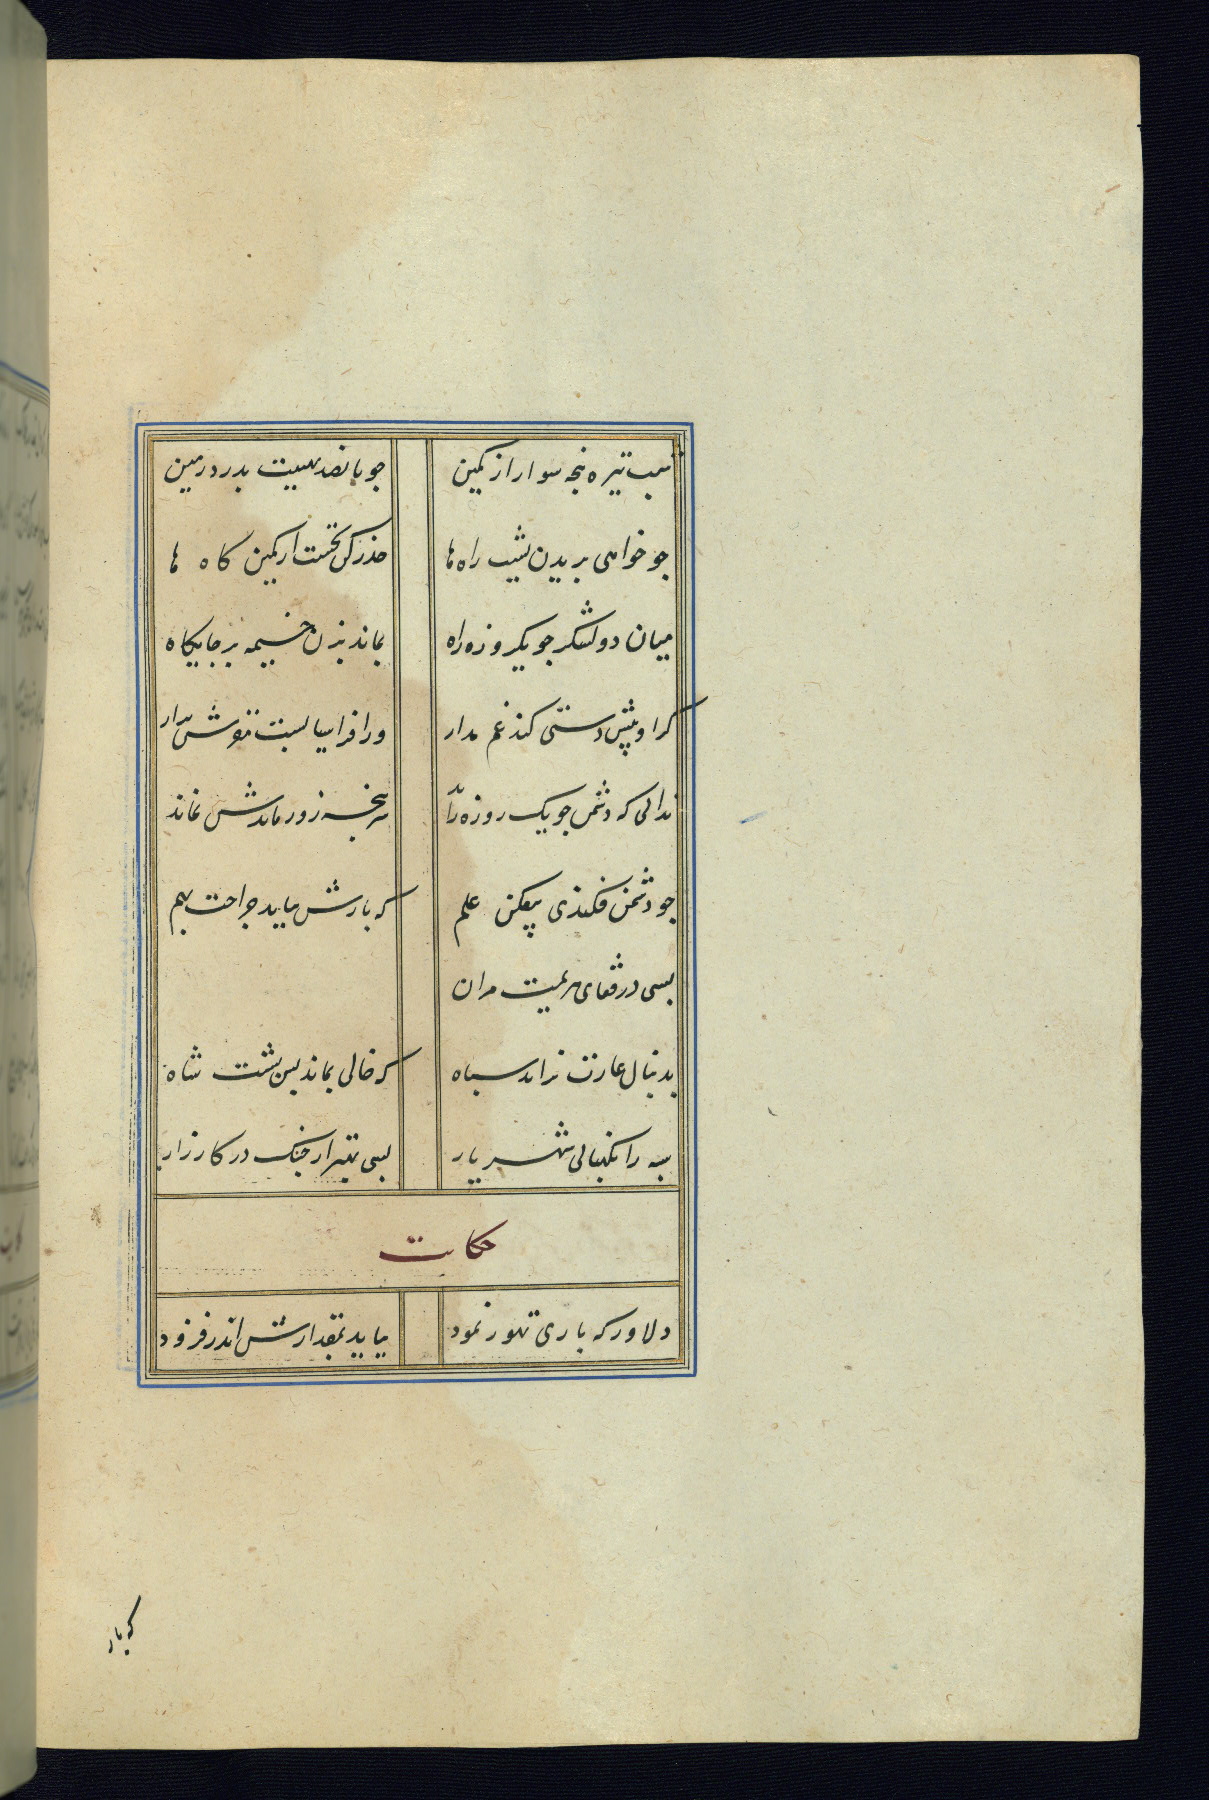 شب تیره پنجه سوار از کمین جو پانصد بهیبت بدرد زمین
جو خواهی بریدن بشب راه ها حذر کن نخست از کمین کاه ها
میان دو لشکر جو یکروزه راه بماند بزن خیمه بر جایکاه
کر او پیش دستی کند غم مدار ور افراسیابست مغزش برار
ندانی که دشمن جو یک روزه راند سر پنجه زورمندش نماند
جو دشمن فکندی بیفکن علم که بازش نیاید جراحت بهم
بسی در قفای هزیمت مران
بدنبال غارت نراند سپاه که خالی بماند پس پشت شاه
سپه را نکهبانی شهریار بسی بهتر از جنک در کارزار
حکایت
دلاور که باری تهور نمود بباید بمقدارش اندر فزود
که بار